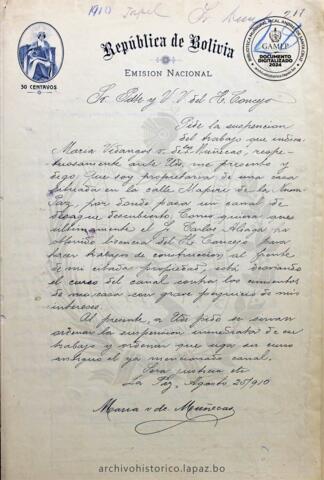 1910
República de Bolivia
EMISION NACIONAL
50 CENTAVOS
BIBLIOTECA MUNICIPAL
GAMLP
DOCUMENTO
DIGITALIZADO
2024
Sr. Pdte y V. V. del H. Concejo
Pide la suspencion
del trabajo que indica
Maria v. de Muñecas, respe-
tuosamente ante Uds, me presento y
digo: Que soy propietaria de una casa
situada en la calle Mapiri de la
Paz, por donde pasa un canal de
desague descubierto; Como quiera que
ultimamente el S. Carlos Aliaga ha
obtenido licencia del H. Concejo para
hacer trabajos de construccion al frente
de mi citada propiedad, está desviando
el curso del canal contra los cimientos
de mi casa con grave perjuicio de mis
intereses.
Al presente, a Uds pido se sirvan
ordenar la suspension inmediata de ese
trabajo y ordenar que siga su curso
antiguo el ya mencionado canal.
Sera justicia etc
La Paz, Agosto 25/910
Maria v de Muñecas
archivohistorico.lapaz.bo